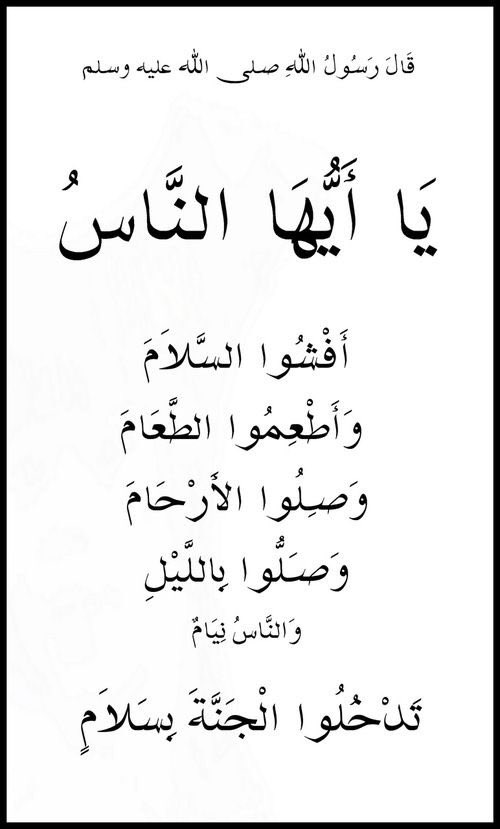 قَالَ رَسُولُ اللهِ صلى الله عليه وسلم
يَا أَيُّهَا النَّاسُ
أَفْشُوا السَّلاَمَ
وَأَطْعِمُوا الطَّعَامَ
وَصِلُوا الأَرْحَامَ
وَصَلُّوا بِاللَّيْلِ
وَالنَّاسُ نِيَامٌ
تَدْخُلُوا الْجَنَّةَ بِسَلاَمٍ